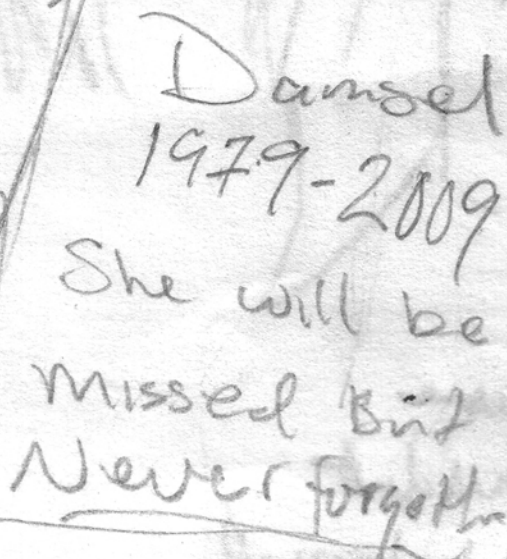 Damsel
1979-2009
She will be
missed But
Never forgotten